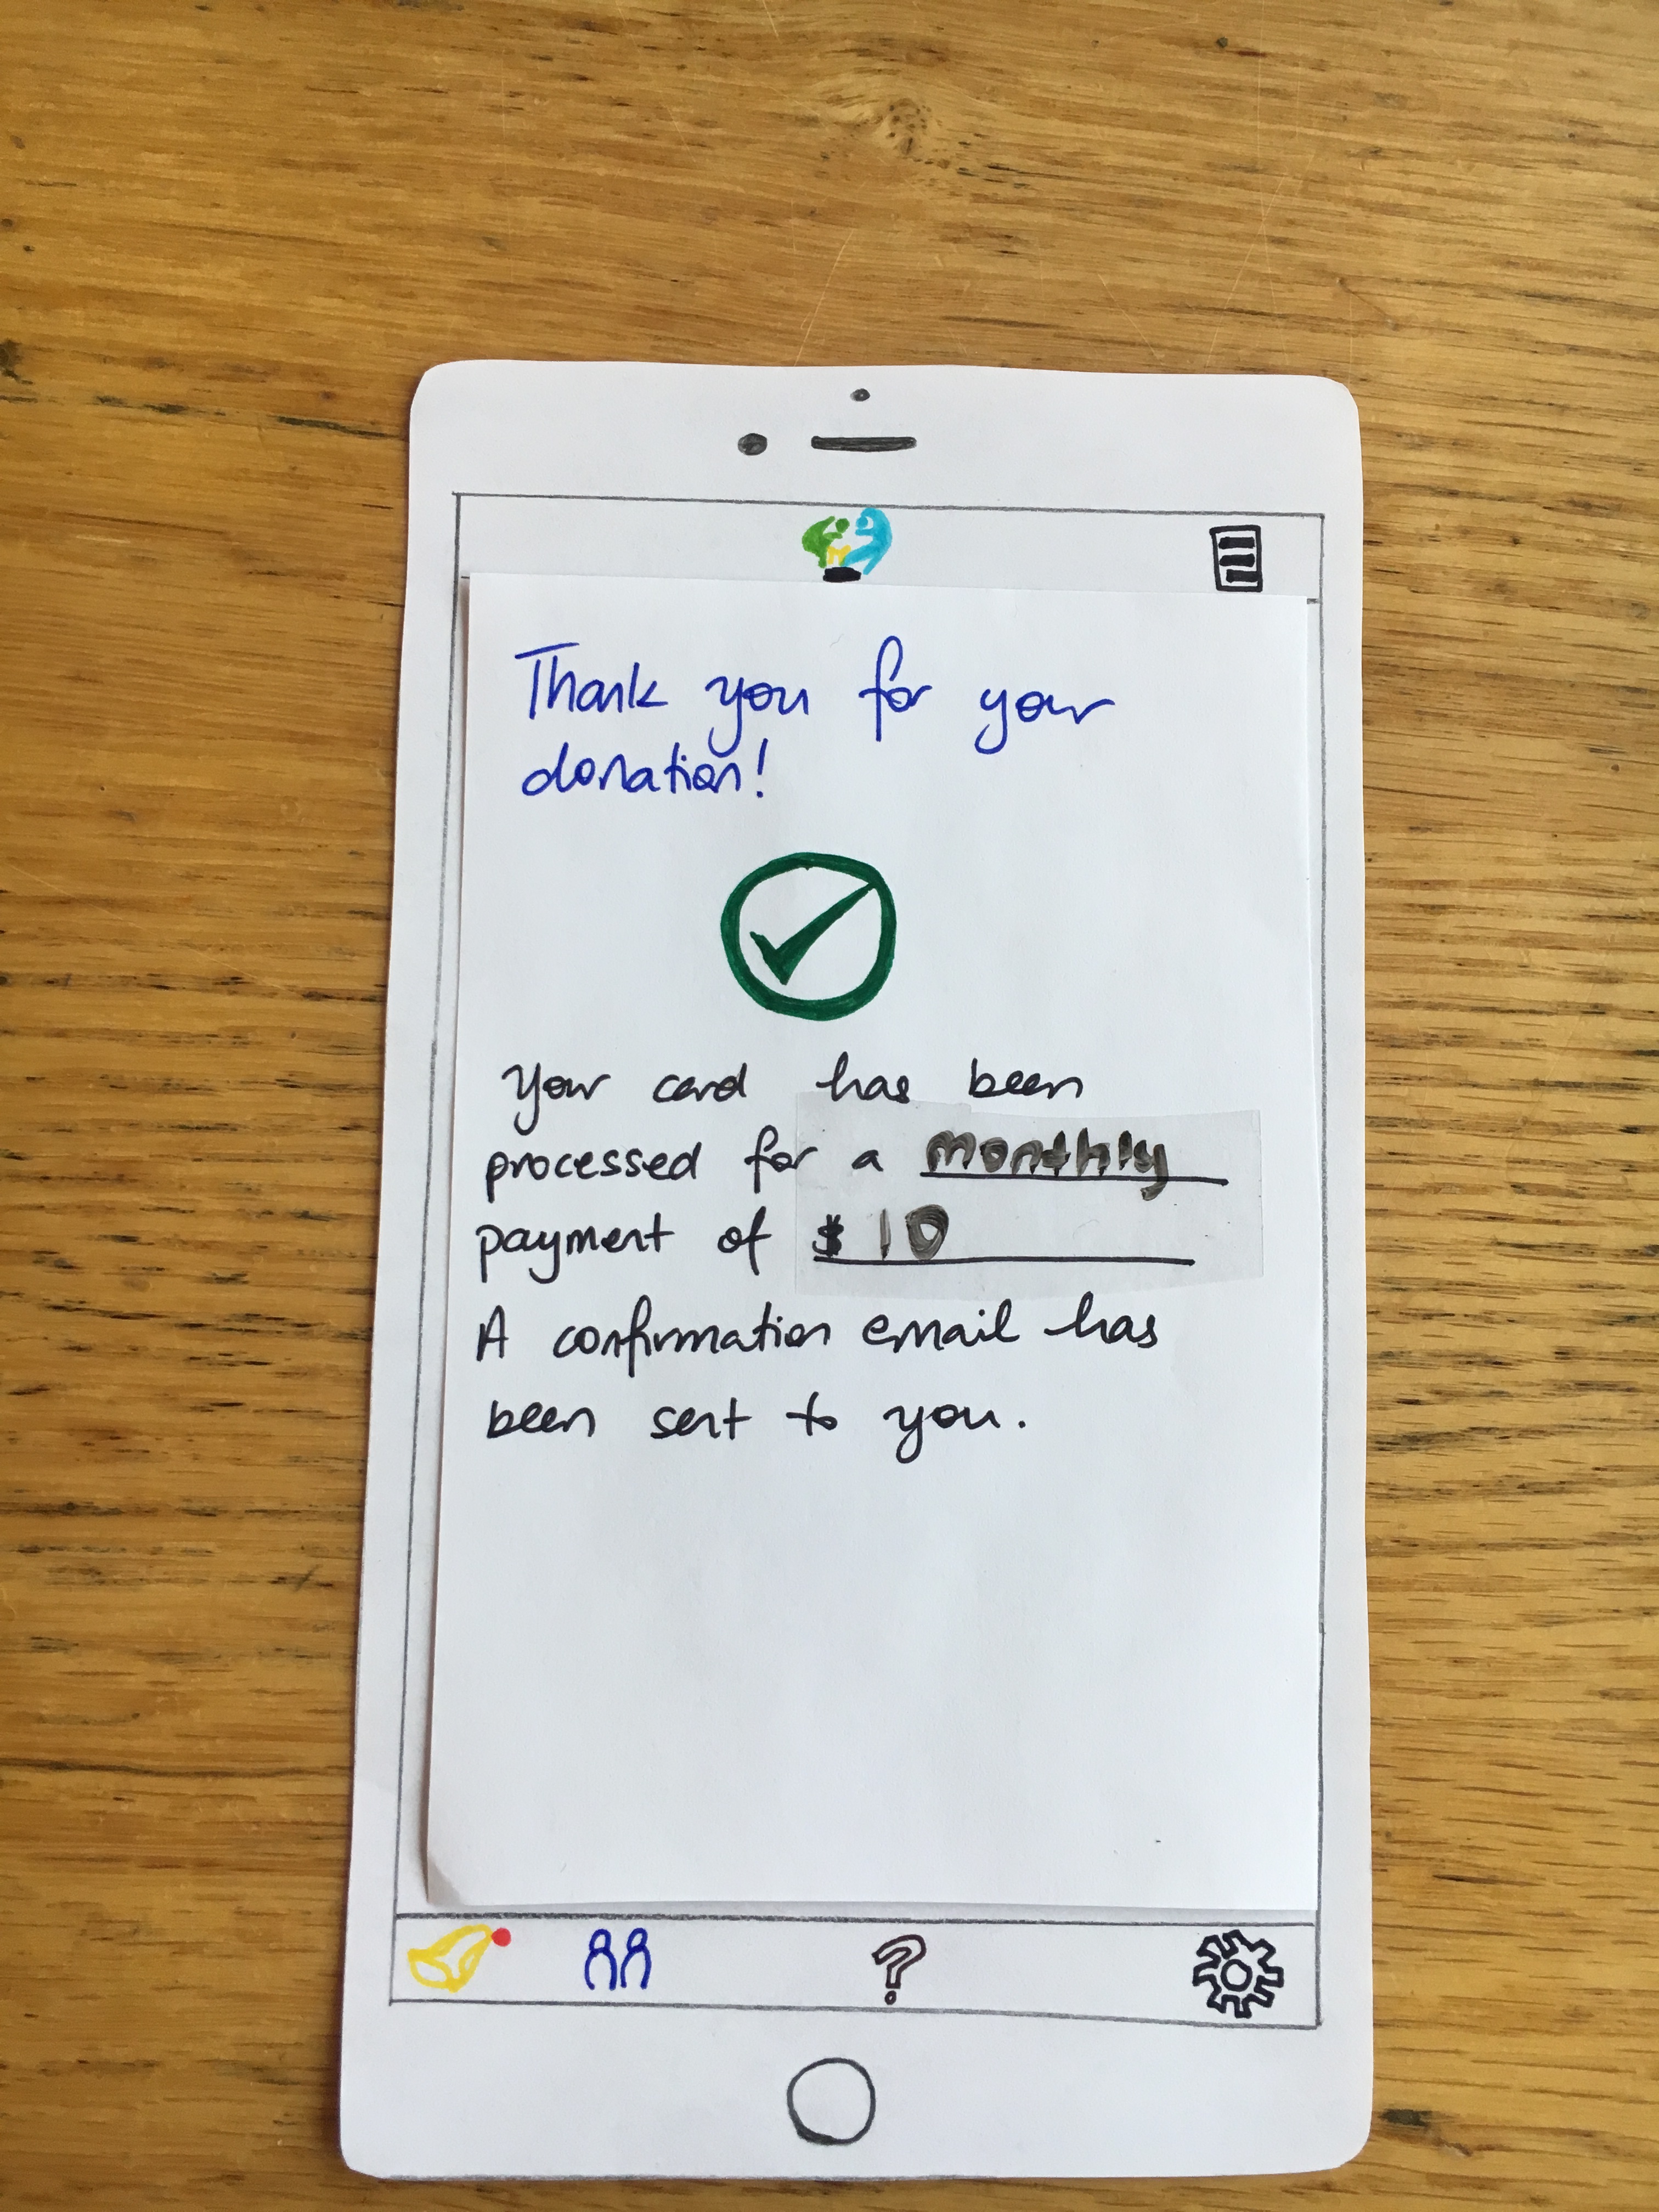 Thank you for your
donation!
Your card has been
processed for a monthly
payment of $10
A confirmation email has
been sent to you.
?